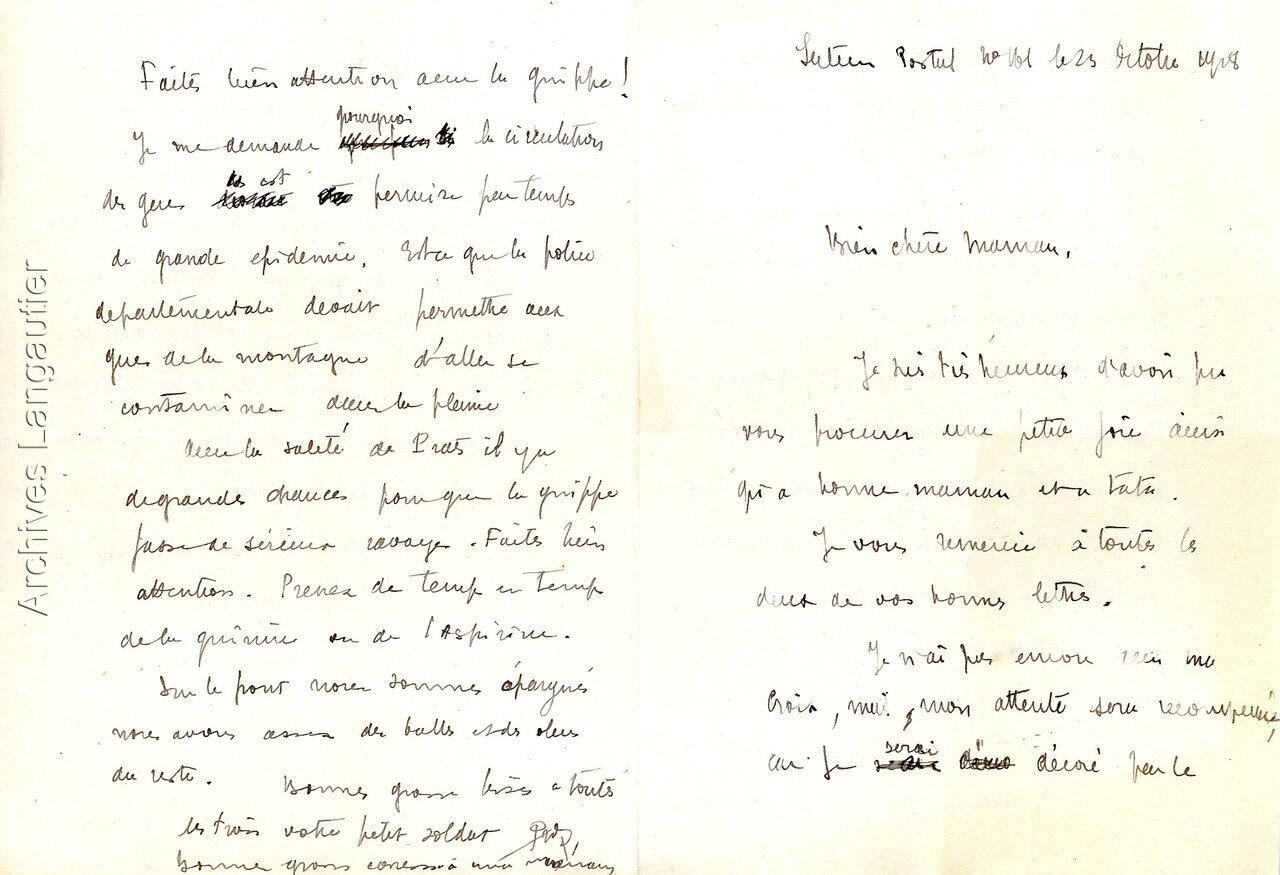 Secteur Postal le 23 Octobre 1918
Bien chère Maman,
Je suis très heureux d'avoir pu
vous procurer une petite joie ainsi
qu'a bonne maman et a tata.
Je vous remercie à toutes les
deux de vos bonnes lettres.
Je n'ai pas encore reçu ma
Croix, mais, mon attente sera recompensée,
car je serai décoré par le
Faites bien attention avec la grippe !
Je me demande pourquoi la circulation
des gens est permise par temps
de grande epidemie. Est ce que la police
departementale devait permettre aux
gens de la montagne d'aller se
contaminer dans la plaine
Avec la saleté de Prats il y a
de grandes chances pour que la grippe
fasse de sérieux ravages. Faites bien
attention. Prenez de temps en temps
de la quinine ou de l'Aspirine.
Sur le front nous sommes épargnés
nous avons assez des balles et des obus
du reste.
Bonnes grosses bises a toutes
les trois votre petit soldat
Bonne grosse caresse à
Archives Langautier